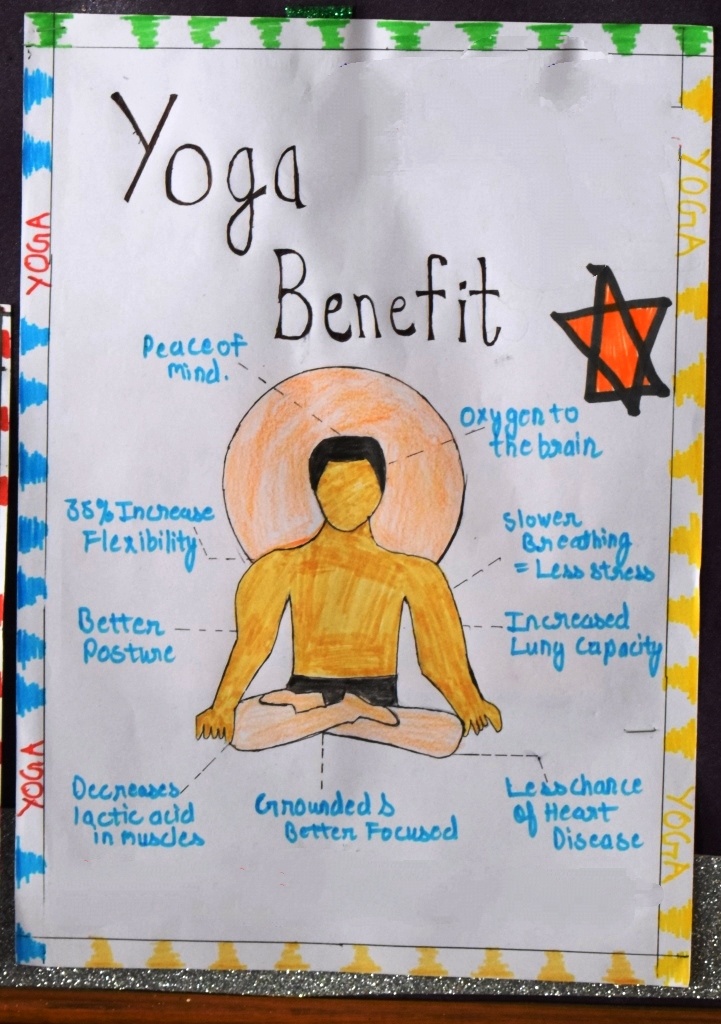 Yoga
Benefit
Peace of
mind.
Oxygen to
the brain
35% Increase
Flexibility
Slower
Breathing
= Less stress
Better
Posture
Increased
Lung Capacity
Decreases
lactic acid
in muscles
Grounded &
Better Focused
Less chance
of Heart
Disease
YOGA
YOGA
YOGA
YOGA